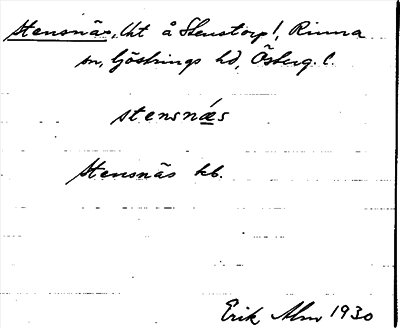 Stensnäs, Uht å Stenstorp!, Rinna
sn, Göstrings hd, Österg. l.
stensnǽs
Stensnäs kb.
Erik Alm 1930